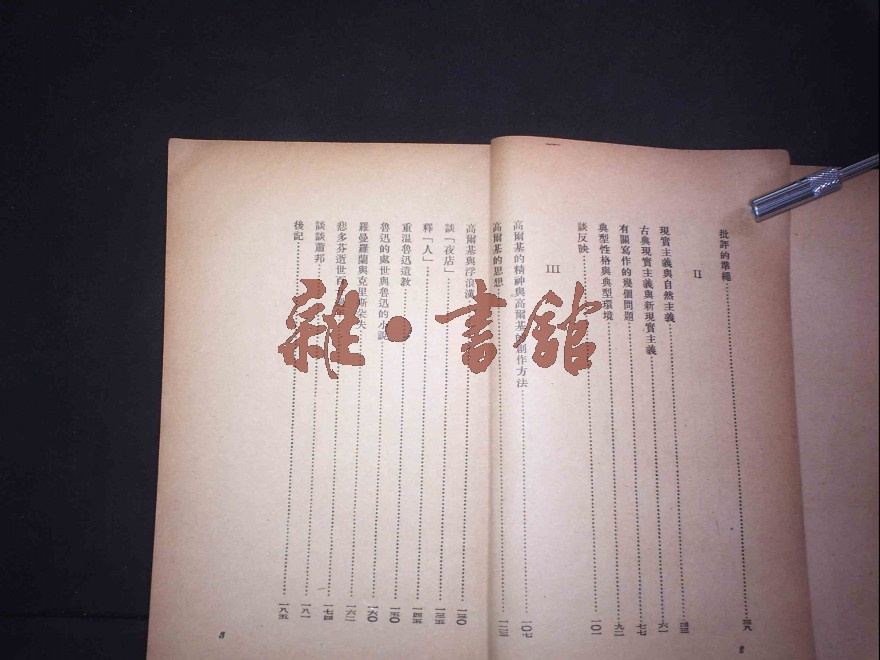 批評的準繩
II
現實主義與自然主義
古典現實主義與新現實主義……六一
有關寫作的幾個問題……七七
典型性格與典型環境……九二
談反映……一〇一
III
高爾基的精神與高爾基的創作方法……一〇七
高爾基的思想……一二三
2
高爾基與浮浪漢……一三〇
談「夜店」……一三五
釋「人」……一四五
重溫魯迅遺教……一五〇
魯迅的處世與魯迅的小說……一六〇
羅曼羅蘭與克里斯朵夫……一六二
悲多芬逝世百……一七四
談談蕭邦……一八一
後記……一八五
3
雜·書館